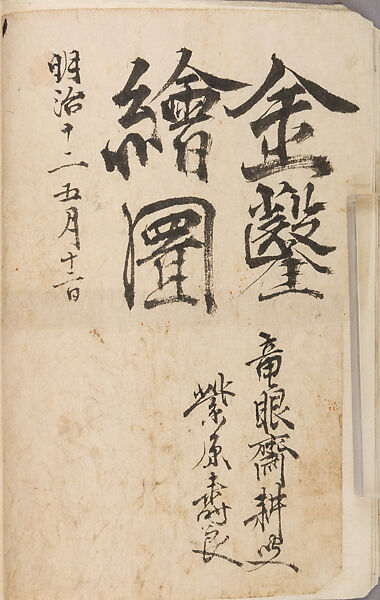 金鑿
繪圖
竜眼齋耕
原壽良
明治十二五月十二日